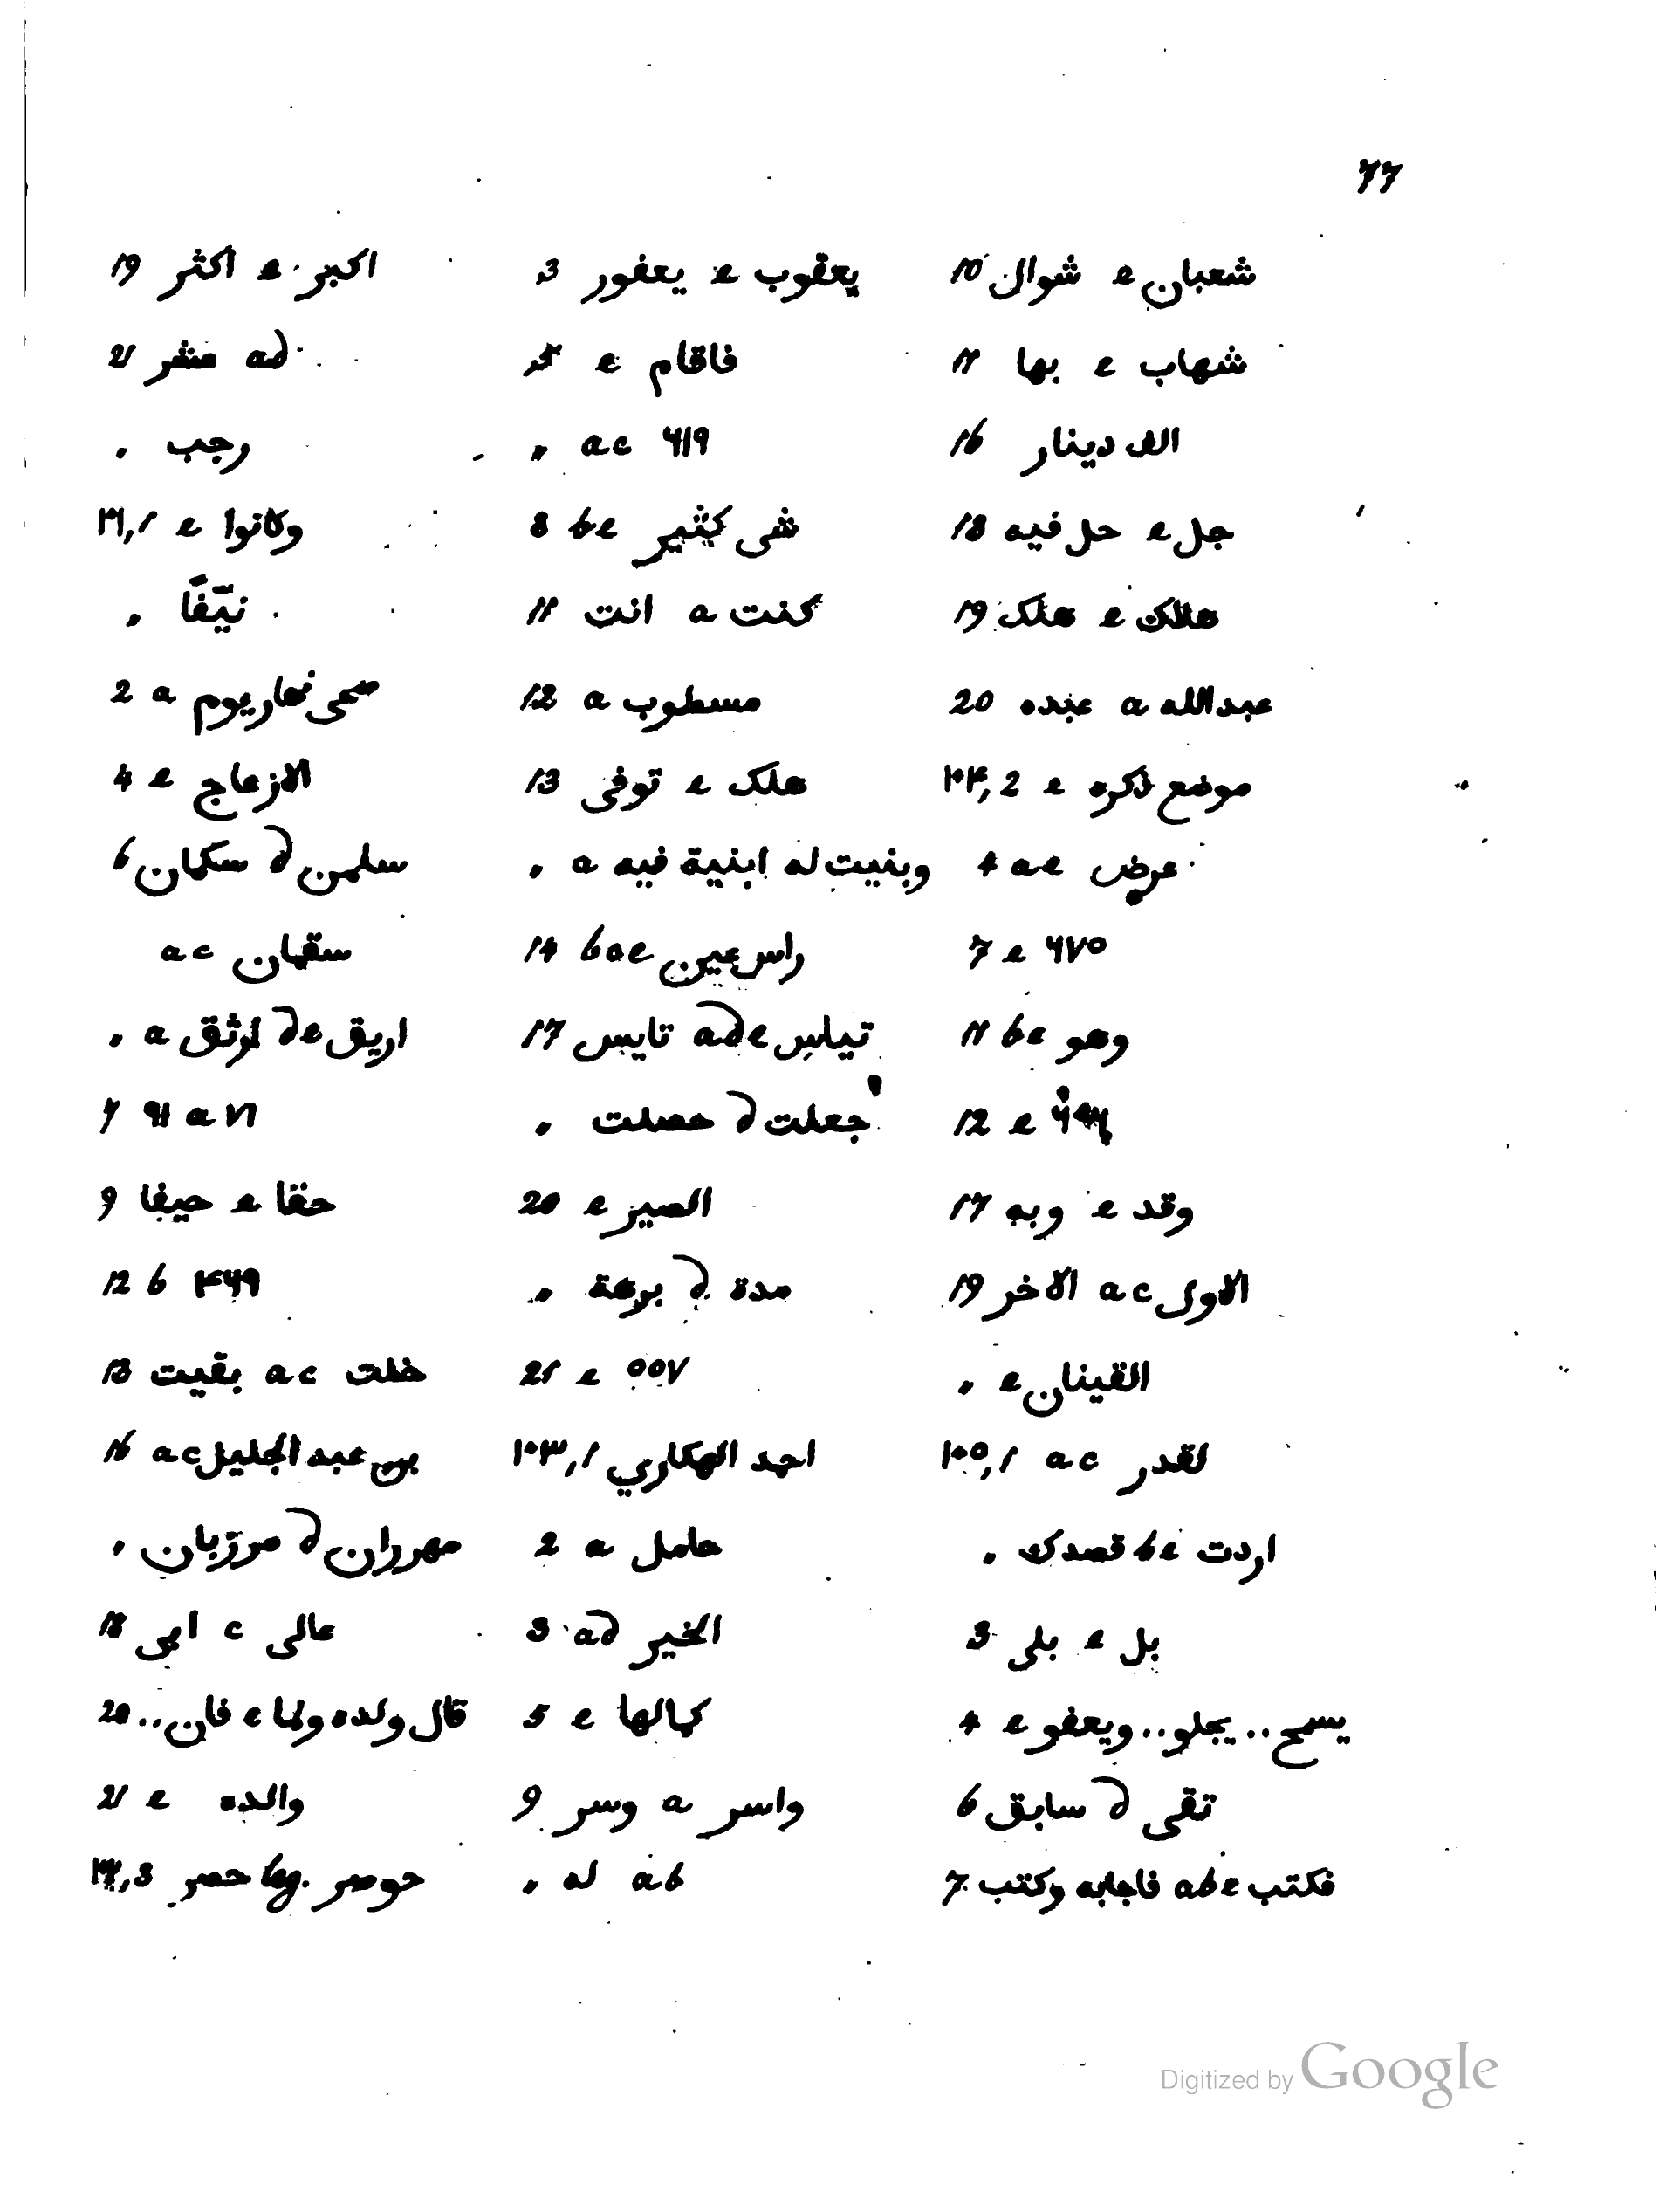 77
شعبان e شوال 10
شهاب e بها 11
الف دينار 16
جل e حل فيه 18
هلاك e هلك 19
عبدالله a عبده 20
موضع ذكره e ١٠٤, 2
عرض ae 4
٦٧٥ e 7
وهو be 11
e 12
وقد e وبه 17
الاول ac الاخر 19
القينان e „
لقدر ac ١٠٥, 1
اردت be قصدك „
بل e بلى 3
يسمح .. يجلو .. ويعفو e 4
تقى d سابق 6
فكتب abe فاجابه وكتب 7
يعقوب e يعفور 3
فاقام e 5
٦١٩ ac „
شى كثير be 8
كنت a انت 11
مسطوب a 12
هلك e توفى 13
وبنيت له ابنية فيه a „
راس عين bae 14
تيلس ade تايس 17
جعلت d حصلت „
الصير e 20
مدة d برهة „
٥٥٧ e 21
احد الهكاري ١٠٣, 1
حامل a 2
الخير ad 3
كمالها e 5
واسر a وسر 9
ab له „
اكبر e اكثر 19
ad عشر 21
رجب „
وكانوا e ١٠٢, 1
نيّفًا „
ضحى نهار يوم a 2
الازعاج e 4
سلمن d سكمان 6
سقمان ac
اريق de ارثق a „
٧١ a ٩١ 7
حقا e حيفا 9
٤٦٩ b 12
خلت ac بقيت 13
بن عبد الجليل ac 16
مهرران d مرزبان „
عالى c ابى 18
قال ولده ولما e فان .. 20
والده e 21
حوصر bg. حصر 3
Digitized by Google